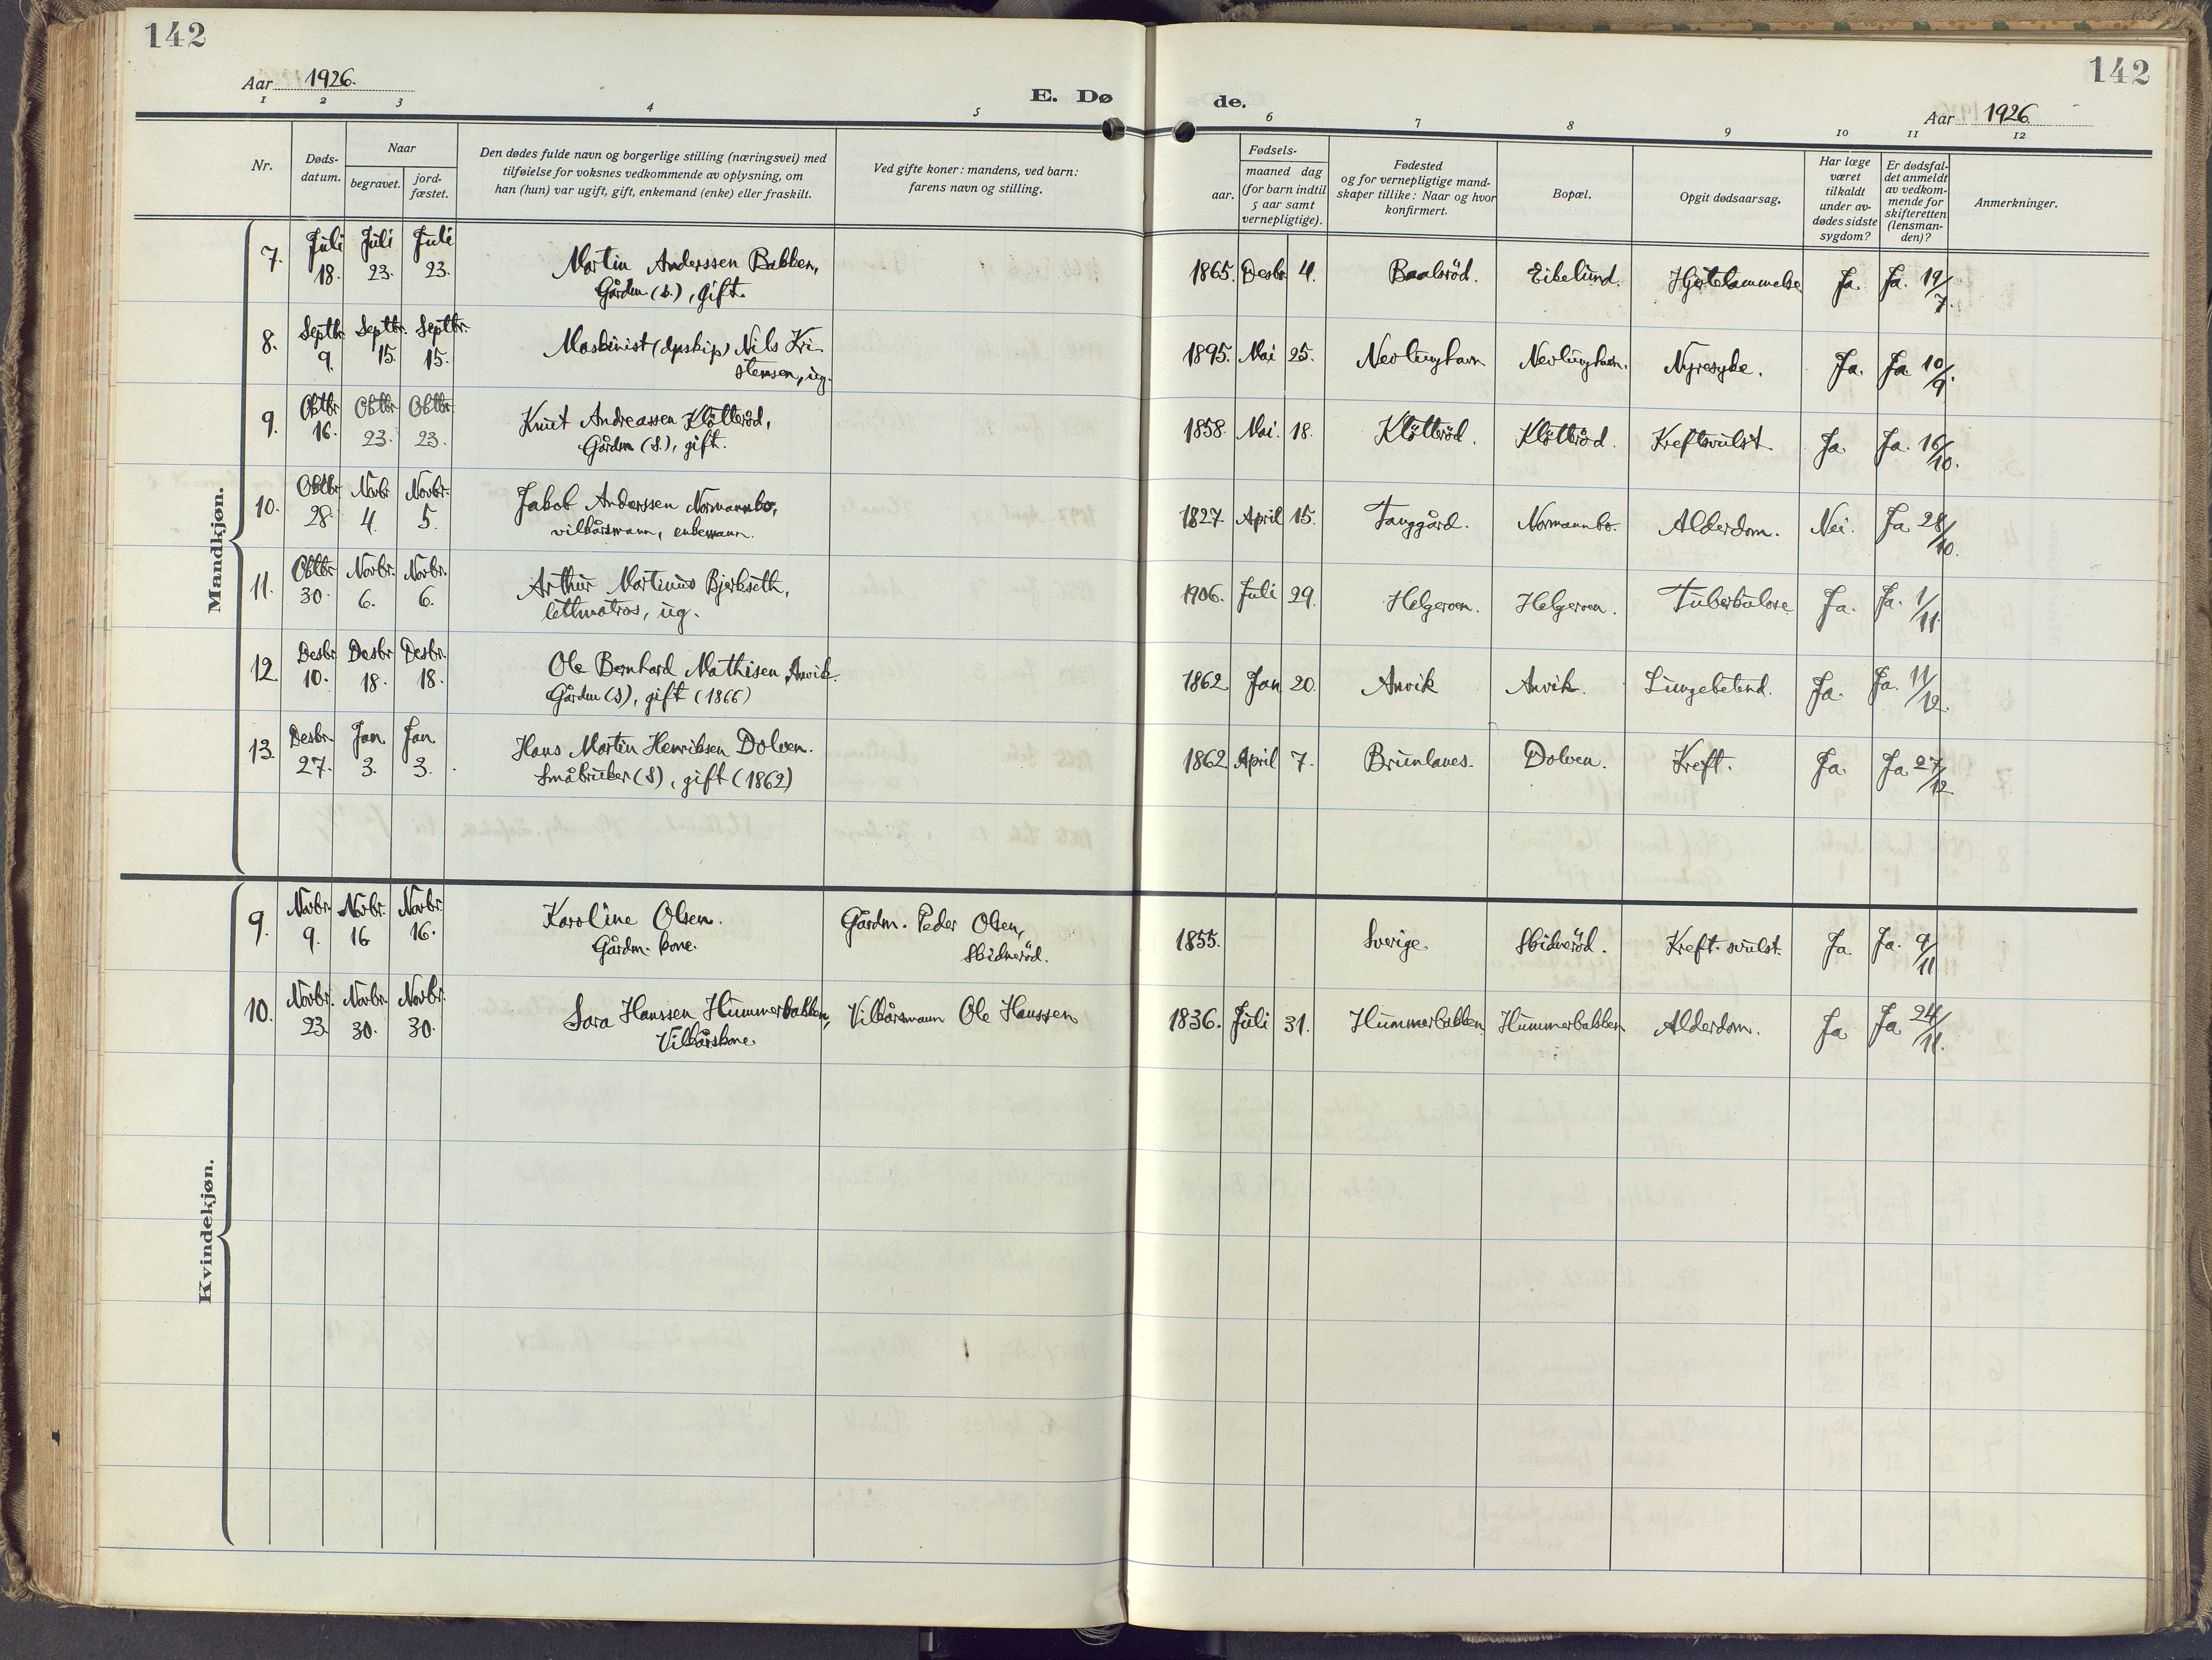 142
142
Aar 1926.
E. Døde.
Aar 1926.
1 2 3 4 5 6 7 8 9 10 11 12
Nr.
Døds-datum.
Naar
begravet.
jord-fæstet.
Den dødes fulde navn og borgerlige stilling (næringsvei) med
tilføielse for voksnes vedkommende av oplysning, om
han (hun) var ugift, gift, enkemand (enke) eller fraskilt.
Ved gifte koner: mandens, ved barn:
farens navn og stilling.
Fødsels-
aar.
maaned dag
(for barn indtil
5 aar samt
vernepligtige).
Fødested
og for vernepligtige mand-
skaper tillike: Naar og hvor
konfirmert.
Bopæl.
Opgit dødsaarsag.
Har læge
været
tilkaldt
under av-
dødes sidste
sygdom?
Er dødsfal-
det anmeldt
av vedkom-
mende for
skifteretten
(lensman-
den)?
Anmerkninger.
Mandkjøn.
7. Juli 18. Juli 23. Juli 23. Martin Anderssen Bakken, 1865. Desbr 4. Baalsröd. Eikelund. Hjertelammelse Ja. Ja. 19/7.
Gårdm. (s.), gift.
8. Septbr. 9. Septbr. 15. Septbr. 15. Maskinist (dpskip) Nils Kri- 1895. Mai 25. Nevlunghavn Nevlunghavn. Nyresyke. Ja. Ja 10/9.
stensen, ug.
9. Oktbr 16. Oktbr 23. Oktbr. 23. Knut Andreassen Klötteröd, 1858. Mai. 18. Klötteröd. Klötteröd. Kreftsvulst Ja. Ja. 16/10.
Gårdm (S.), gift.
10. Oktbr 28. Novbr 4. Novbr. 5. Jakob Anderssen Normannbo, 1827. April 15. Fauggård. Normannbo. Alderdom. Nei. Ja 28/10.
vilkårsmann, enkemann.
11. Oktbr. 30. Novbr. 6. Novbr. 6. Arthur Martinus Bjerkseth, 1906. Juli 29. Helgeroen. Helgeroen. Tuberkulose Ja. Ja. 1/11.
lettmatros, ug.
12. Desbr 10. Desbr 18. Desbr. 18. Ole Bernhard Mathisen, Anvik. 1862. Jan 20. Anvik Anvik. Lungebetend. Ja. Ja. 11/12.
Gårdm (S), gift (1866)
13. Desbr. 27. Jan 3. Jan 3. Hans Martin Henriksen Dolven. 1862 April 7. Brunlanes. Dolven. Kreft. Ja. Ja 27/12.
Småbruker (S), gift (1862)
Kvindekjøn.
9. Novbr. 9. Novbr. 16 Novbr. 16. Karoline Olsen. Gårdm. Peder Olsen, 1855. Sverige. Skidneröd. Kreft-svulst. Ja Ja. 9/11
Gårdm. kone. Skidneröd.
10. Novbr. 23. Novbr. 30. Novbr. 30. Sara Hanssen Hummerbakken, Vilkårsmann Ole Hanssen 1836. Juli 31. Hummerbakken Hummerbakken Alderdom. Ja Ja 24/11.
Vilkårskone.